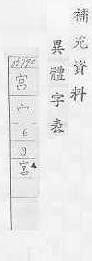 補充資料
異體字表
宮
宀
6
9
宫